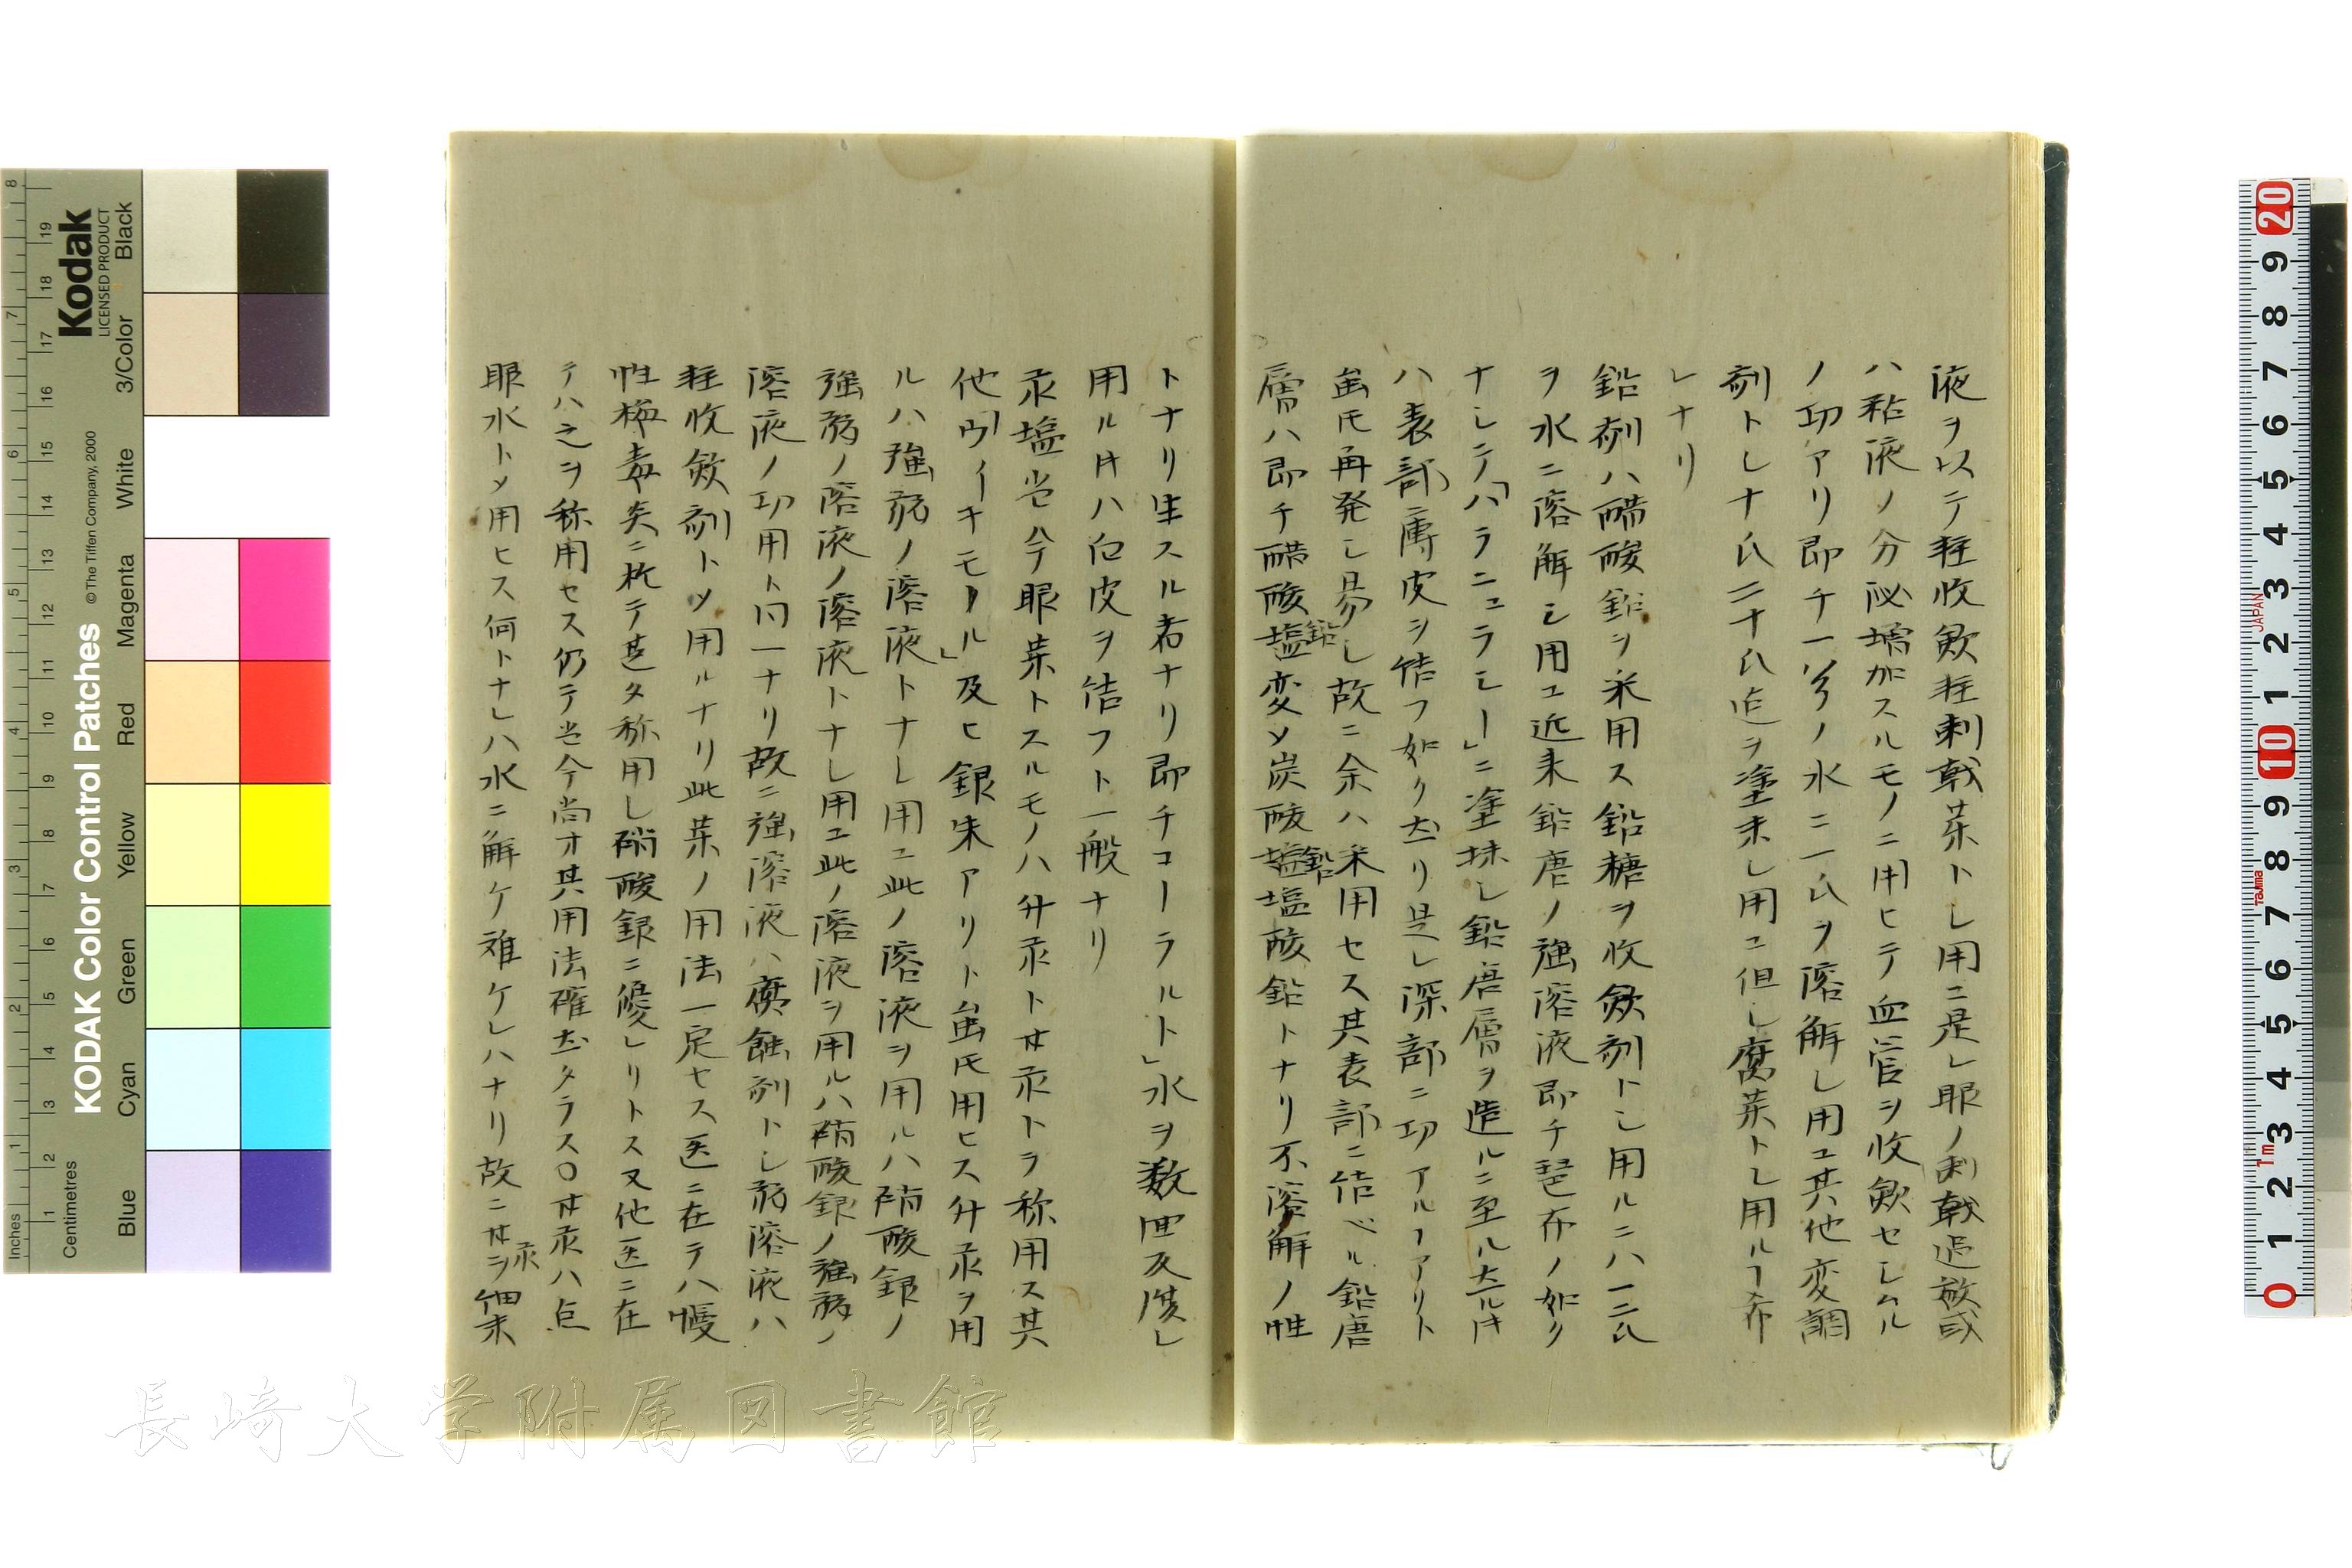 液ヲ以テ軽收歛軽刺戟薬トし用ユ是レ眼ノ刺戟過敏或
ハ粘液ノ分泌増加スルモノニ用ヒテ血管ヲ收歛セしムル
ノ功アリ即チ一ノ水ニ一氏ヲ溶解し用ユ其他変調
剤トし十氏二十氏迄ヲ塗末し用ユ但し腐薬トし用ルヿ希
レナリ
鉛剤ハ醋酸鉛ヲ釆用ス鉛糖ヲ收歛剤トし用ルニハ一二氏
ヲ水ニ溶解し用ユ近来鉛唐ノ強溶液即チ琶布ノ如ク
ナしテ「ハラニュラモー」ニ塗抹し鉛唐層ヲ造ルニ至ル大ルキ
ハ表部薄皮ヲ結フ如ク去リ是レ深部ニ功アルヿアリト
虽氏再発し易し故ニ余ハ釆用セス其表部ニ結ベル鉛唐
層ハ即チ醋酸塩鉛変メ炭酸鉛塩酸鉛トナリ不溶解ノ性
トナリ生スル者ナリ即チコーラルト」水ヲ数回反復し
用ルキハ白皮ヲ結フト一般ナリ
汞塩当今眼薬トスルモノハ升汞ト甘汞トヲ称用ス其
他「ウイーキモール」及ヒ銀朱アリト虽氏用ヒス升汞ヲ用
ルハ強弱ノ溶液トナし用ユ此ノ溶液ヲ用ルハ硝酸銀ノ
強弱ノ溶液ノ溶液トナし用ユ此ノ溶液ヲ用ルハ硝酸銀ノ強弱ノ
溶液ノ功用ト同一ナリ故ニ強溶液ハ腐蝕剤トし弱溶液ハ
軽收歛剤トメ用ルナリ此薬ノ用法一定セス医ニ在テハ慢
性梅毒炎ニ於テ甚タ称用し硝酸銀ニ優レリトス又他医ニ在
テハ之ヲ称用セス仍テ当今尚才其用法確立タラス〇甘汞ハ点
眼水トメ用ヒス何トナレハ水ニ解ケ難ケレハナリ故ニ甘汞ヲ細末
KODAK Color Control Patches
Kodak
LICENSED PRODUCT
© The Tiffen Company, 2000
Inches
Centimetres
Blue
Cyan
Green
Yellow
Red
Magenta
White
3/Color
Black
JAPAN
Tajima
長崎大学附属図書館